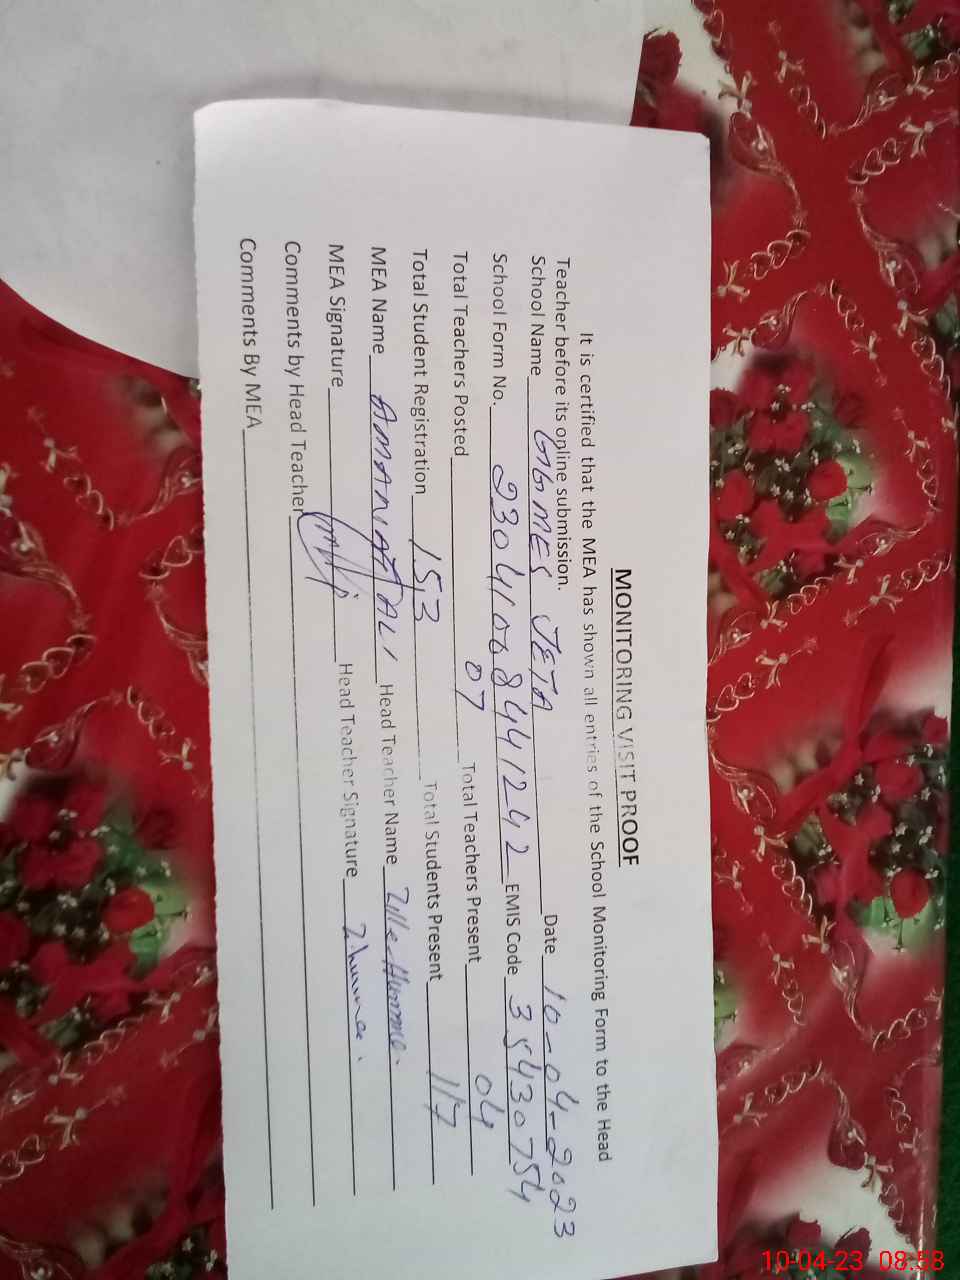 MONITORING VISIT PROOF
It is certified that the MEA has shown all entries of the School Monitoring Form to the Head
Teacher before its online submission.
School Name GGMES JETA Date 10-04-2023
School Form No. 23041008441242 EMIS Code 35430754
Total Teachers Posted 07 Total Teachers Present 04
Total Student Registration 153 Total Students Present 117
MEA Name AMANAT ALI Head Teacher Name Zille Humma.
MEA Signature Head Teacher Signature
Comments by Head Teacher
Comments By MEA
10-04-23 08:58